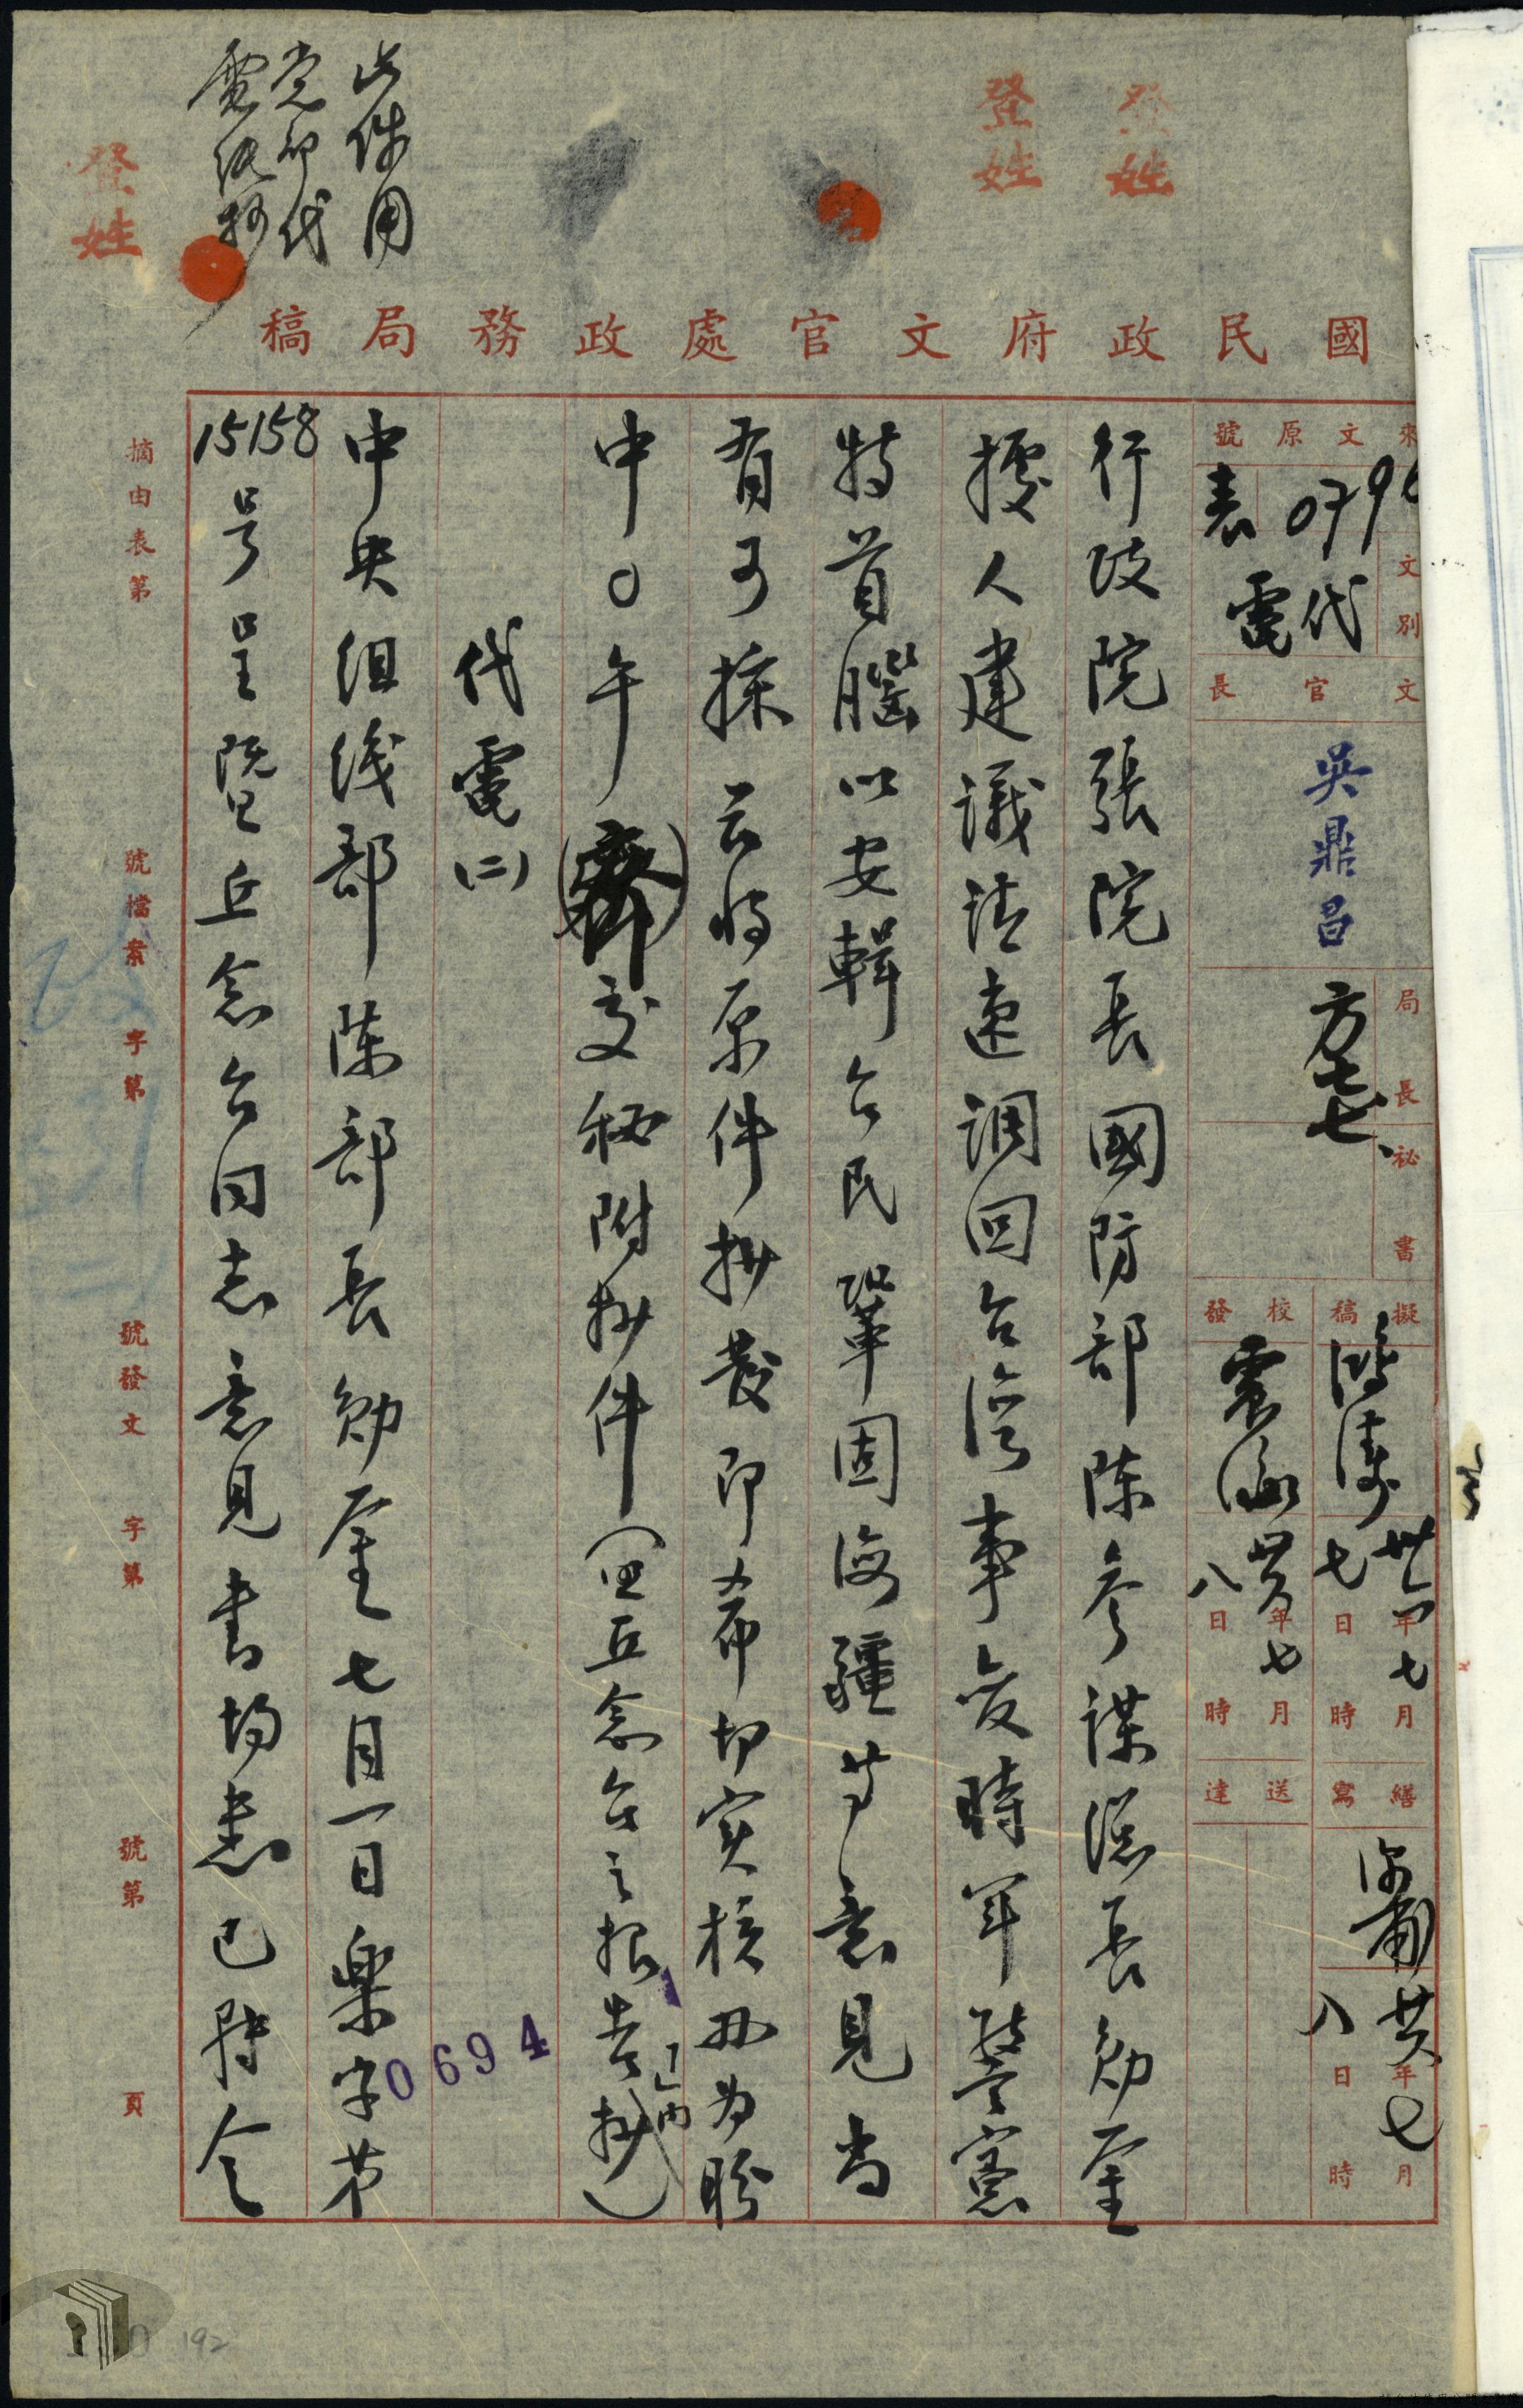 此件用
党部代
電紙抄
登姓
登姓
登姓
國民政府文官處政務局稿
來文原號
表
079
文別
代電
文官長
吳鼎昌
局長
方
七
祕書
擬稿
鴻濤
卅六年七月七日時
校發
震涵
卅六年七月八日時
繕寫
共年七月八日時
送達
行政院張院長國防部陳參謀總長勛鑒
據人建議請速調回台灣事变時軍警憲
特首腦以安輯台民鞏固海疆等意見尚
有可採云將原件抄發即希切實核办为盼
中○午(齊)交秘附抄件(丘念台之報告內抄)
代電(二)
中央組織部陳部長勛鑒七月一日樂字第
15158号呈暨丘念台同志意見書均悉已轉令
0694
摘由表第號檔案字第號發文字第號第頁
192